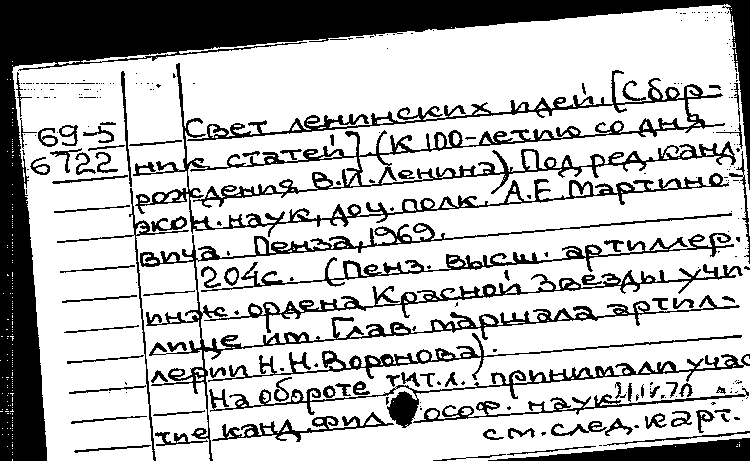 69-5
6722
Свет ленинских идей. [Сбор=
ник статей] (К 100-летию со дня
рождения В.И.Ленина). Под ред. канд.
экон. наук, доц. полк. А.Е. Мартино-
вича. Пенза, 1969.
204с. (Пенз. высш. артиллер.
инж. ордена Красной Звезды учи-
лище им. Глав. маршала артил-
лерии Н.Н.Воронова).
На обороте тит.л.: принимали учас
тие канд. философ. наук 21.IV.70
см. след. карт.